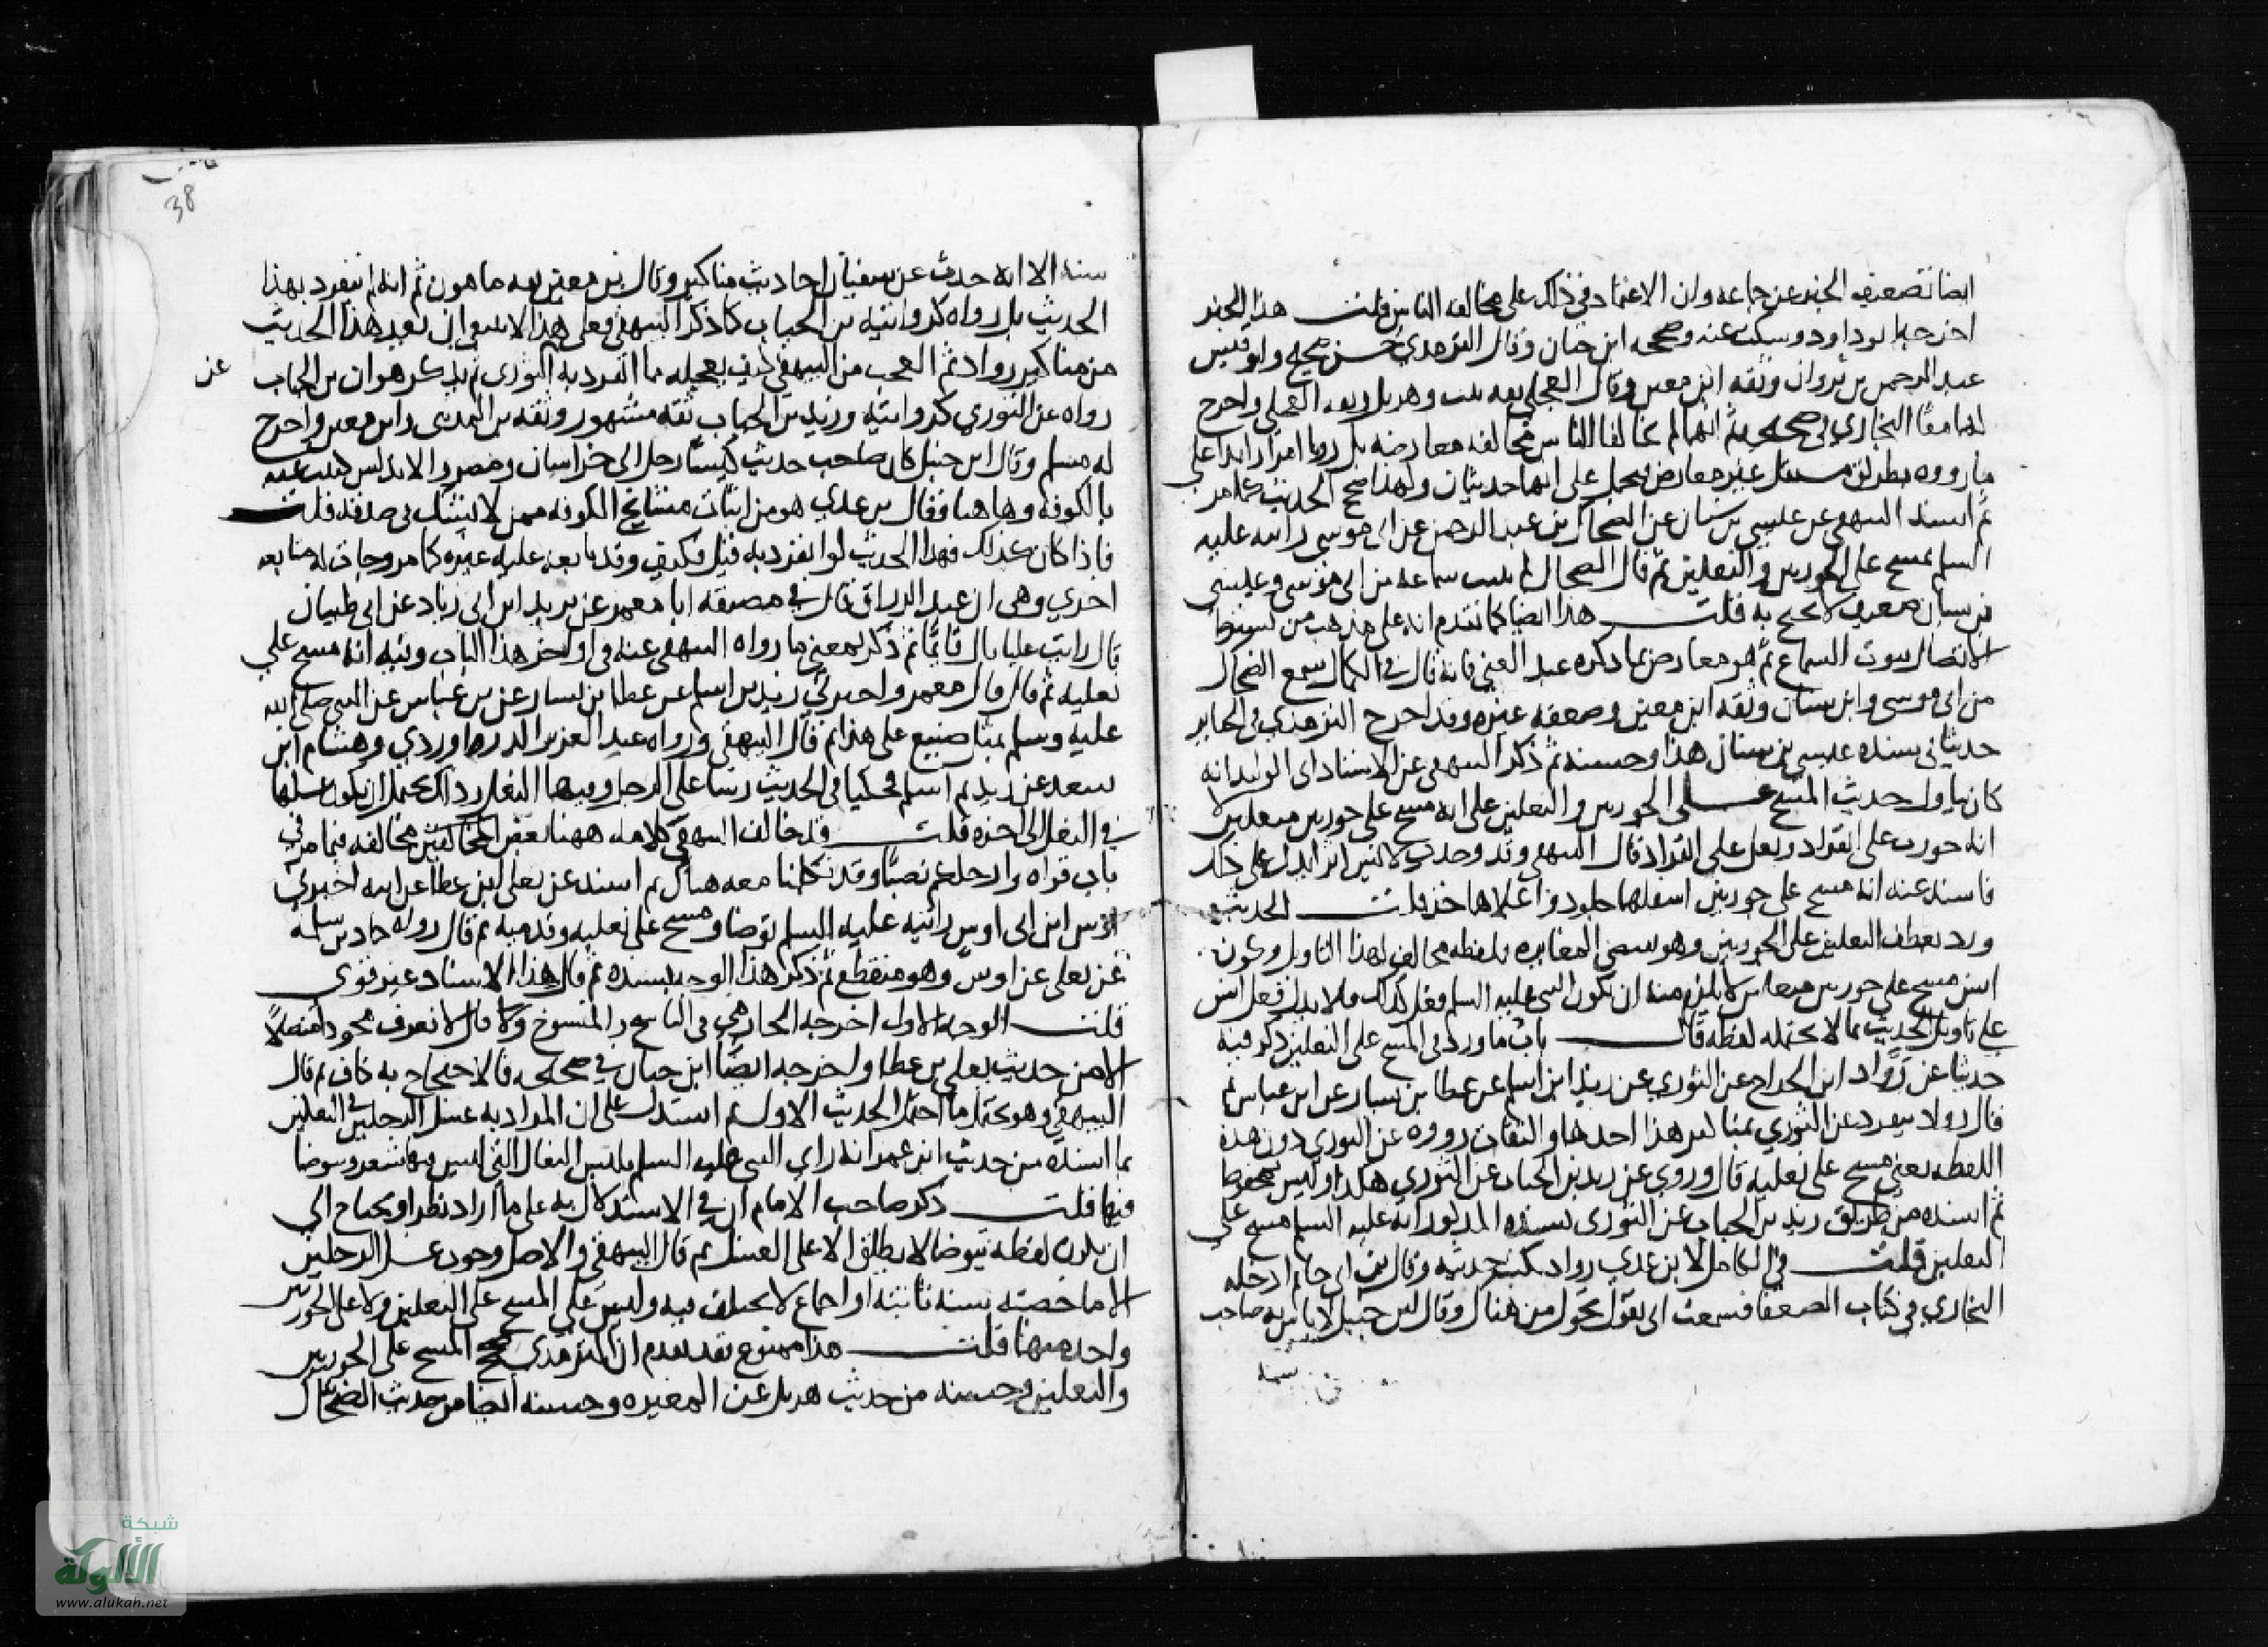 ايضا تضعيف الخبر عن جماعه وان الاعتماد في ذلك على مخالفه الناس قلت هذا الخبر
اخرجه ابو داود وسكت عنه وصححه ابن حبان وقال الترمذي حسن صحيح وابو قيس
عبد الرحمن بن ثروان وثقه ابن معين وقال العجلي ثقه ثبت وهزيل وثقه العجلي واخرج
لهما معًا البخاري في صحيحه ثم انهما لم يخالفا الناس مخالفه معارضه بل رويا امرا زايدا على
ما رووه بطريق مستقل غير معارض فيحمل على انهما حديثان ولهذا صح الحديث كما مر
ثم اسند البيهقي عن عيسى بن سنان عن الضحاك بن عبد الرحمن عن ابي موسى رايته عليه
السلم يمسح على الجوربين والنعلين ثم قال الضحاك لم يثبت سماعه من ابي موسى وعيسى
بن سنان ضعيف لا يحتج به قلت هذا ايضا كما تقدم انه على مذهب من يشترط
للاتصال ثبوت السماع ثم هو معارض بما ذكره عبد الغني فانه قال في الكمال سمع الضحاك
من ابي موسى وابن سنان وثقه ابن معين وضعفه غيره وقد اخرج الترمذي في الجنايز
حديثا في سنده عيسى بن سنان هذا وحسنه ثم ذكر البيهقي عن الاستاد ابي الوليد انه
كان ياول حديث المسح على الجوربين والنعلين على انه مسح على جوربين منعلين لا
انه جورب على انفراد ونعل على انفراد قال البيهقي وقد وجدت لانس اثرا يدل على ذلك
فاسند عنه انه مسح على جوربين اسفلهما جلود واعلاهما خز قلت الحديث
ورد بعطف النعلين على الجوربين وهو يقتضي المغايره فلفظه مخالف لهذا التاويل وكون
انس مسح على جوربين منعلين لا يلزم منه ان يكون النبي عليه السلم فعل كذلك فلا يدل فعل انس
على تاويل الحديث بما لا يحتمله لفظه قال باب ما ورد في المسح على النعلين ذكر فيه
حديثا عن روّاد ابن الجراح عن الثوري عن زيد ابن اسلم عن عطا بن يسار عن ابن عباس ثم
قال رواد ينفرد عن الثوري بمناكير هذا احدها والثقات رووه عن الثوري دون هذه
اللفظه يعني مسح على نعليه قال وروي عن زيد بن الحباب عن الثوري هكذا وليس بمحفوظ
ثم اسنده من طريق زيد بن الحباب عن الثوري بسنده المذكور انه عليه السلم مسح على
النعلين قلت في الكامل لابن عدي رواد يكتب حديثه وقال ابن ابي حاتم ادخله
البخاري في كتاب الضعفا فسمعت ابي يقول يحول من هناك وقال ابن حنبل لا باس به صاحب
سنه الا انه حدث عن سفيان احاديث مناكير وقال بن معين ثقه مامون ثم انه لم ينفرد بهذا
الحديث بل رواه كروايته بن الحباب كما ذكر البيهقي فعلى هذا لا ينبغي ان يعد هذا الحديث
من مناكير رواد ثم العجب من البيهقي كيف يجعله مما انفرد به الثوري ثم يذكر هو ان بن الحباب
عن
رواه عن الثوري كروايته وزيد بن الحباب ثقه مشهور وثقه بن المديني وابن معين واخرج
له مسلم وقال ابن حنبل كان صاحب حديث كيسًا رحل الى خراسان ومصر والاندلس كتبت عنه
بالكوفه وهاهنا وقال بن عدي هو من اثبات مشايخ الكوفه ممن لا يشك في صدقه قلت
فاذا كان كذلك فهذا الحديث لو انفرد به قبل فكيف وقد تابعه عليه غيره كما مر وجات له متابعه
اخرى وهي ان عبد الرزاق قال في مصنفه انا معمر عن يزيد ابن ابي زياد عن ابي ظبيان
قال رايت عليا بال قائمًا ثم ذكر بمعنى ما رواه البيهقي عنه في اواخر هذا الباب وفيه انه مسح على
نعليه ثم قال قال معمر واخبرني زيد بن اسلم عن عطا بن يسار عن بن عباس عن النبي صلى الله
عليه وسلم بمثل صنيع علي هذا ثم قال البيهقي ورواه عبد العزيز الدراوردي وهشام ابن
سعد عن زيد بن اسلم فحكيا في الحديث رشا على الرجل وفيها النعل وذلك يحتمل ان يكون غسلها
في النعل الى اخره قلت قد خالف البيهقي كلامه ههنا بعض المخالفه فيما مر في
باب قراه وارجلكم نصبًا وقد تكلمنا معه هناك ثم اسند عن يعلى بن عطا عن ابيه اخبرني
اوس ابن ابي اوس رايته عليه السلم توضا ومسح على نعليه وقدميه ثم قال رواه حماد بن سلمه
عن يعلى عن اوس وهو منقطع ثم ذكر هذا الوجه بسنده ثم قال هذا الاسناد غير قوي
قلت الوجه الاول اخرجه الحازمي في الناسخ والمنسوخ وقال لا نعرف مجودا متصلًا
الا من حديث يعلى بن عطا واخرجه ايضًا ابن حبان في صحيحه فالاحتجاج به كاف ثم قال
البيهقي وهو يحتمل ما احتمل الحديث الاول ثم استدل على ان المراد به غسل الرجلين في النعلين
بما اسنده من حديث ابن عمر انه راى النبي عليه السلم يلبس النعال التي ليس فيها شعر ويتوضا
فيها قلت ذكر صاحب الامام ان في الاستدلال به على ما اراد نظرا ويحتاج الى
ان يكون لفظه يتوضا لا يطلق الا على الغسل ثم قال البيهقي والاصل وجوب غسل الرجلين
الا ما خصته سنه ثابته او اجماع لا يختلف فيه وليس على المسح على النعلين ولا على الجوربين
واحد منهما قلت هذا ممنوع فقد تقدم ان الترمذي صحح المسح على الجوربين
والنعلين وحسنه من حديث هزيل عن المغيره وحسنه ايضا من حديث الضحاك
38
شبكة
الألوكة
www.alukah.net